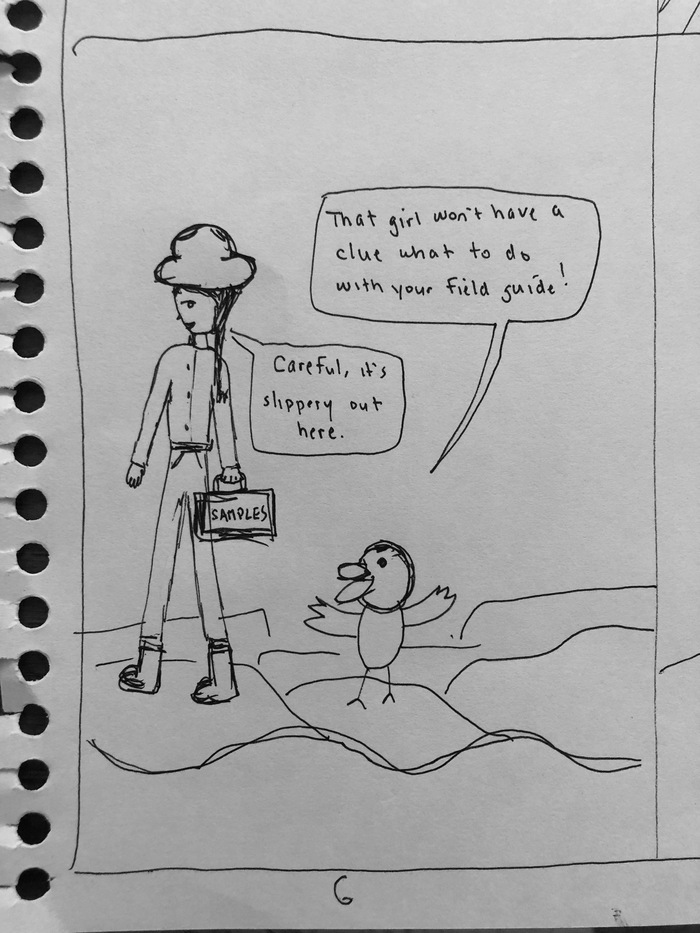 That girl won't have a
clue what to do
with your field guide!
Careful, it's
slippery out
here.
SAMPLES
6